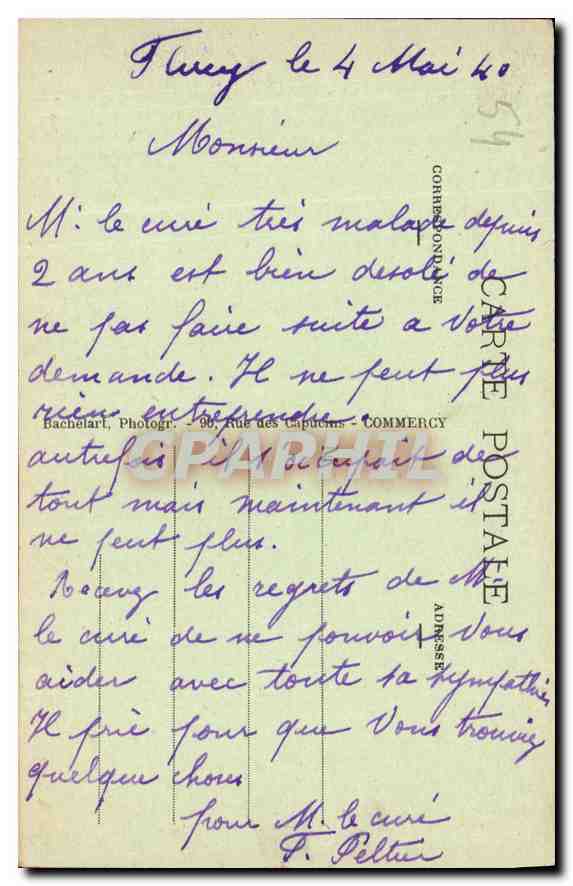 le 4 Mai 40
54
Monsieur
M. le curé très malade depuis
2 ans est bien desolé de
ne pas faire suite a votre
demande. Il ne peut plus
rien entreprendre.
autrefois il s'occupait de
tout mais maintenant il
ne peut plus.
Recevez les regrets de M.
le curé de ne pouvoir vous
aider avec toute sa sympathie
Il prie pour que vous trouviez
quelque chose
pour M. le curé
F. Peltier
CORRESPONDANCE
CARTE POSTALE
ADRESSE
Bachelart, Photogr. - 96, Rue des Capucins - COMMERCY
CPAPHIL